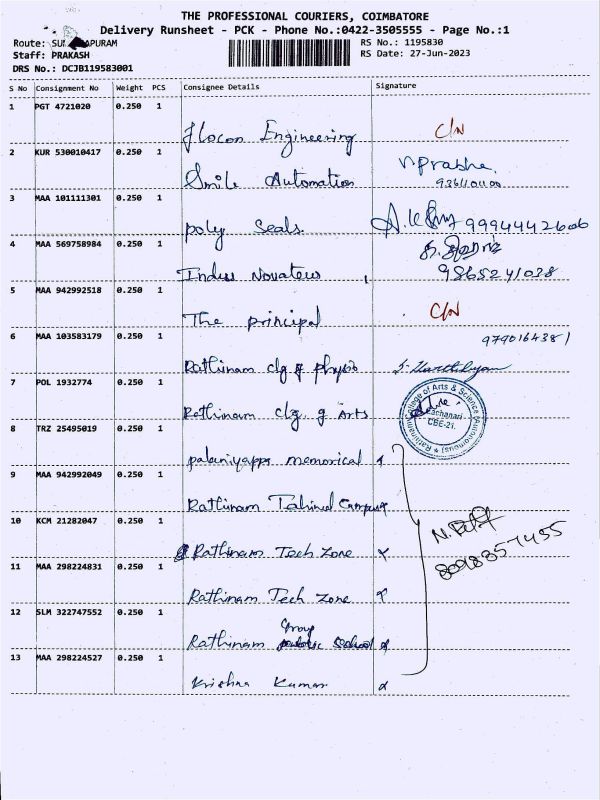 THE PROFESSIONAL COURIERS, COIMBATORE
Delivery Runsheet - PCK - Phone No.:0422-3505555 - Page No.:1
Route: SU APURAM
RS No.: 1195830
Staff: PRAKASH
RS Date: 27-Jun-2023
DRS No.: DCJB119583001
S No Consignment No Weight PCS Consignee Details Signature
1 PGT 4721020 0.250 1
Flocon Engineering C/N
2 KUR 530010417 0.250 1
Smile Automation
3 MAA 101111301 0.250 1
poly Seals. 9994442606
4 MAA 569758984 0.250 1
Indus Novateus 9865241038
5 MAA 942992518 0.250 1
The principal C/N
6 MAA 103583179 0.250 1
9790164381
Rathinam clg of physio
7 POL 1932774 0.250 1
Rathinam clg of Arts
8 TRZ 25495019 0.250 1
CBE-21.
palaniyappa memorical
9 MAA 942992049 0.250 1
Rathinam Campus
10 KCM 21282047 0.250 1
Rathinam Tech Zone
8098357455
11 MAA 298224831 0.250 1
Rathinam Tech Zone
12 SLM 322747552 0.250 1
Group
Rathinam School
13 MAA 298224527 0.250 1
Krishna Kumar